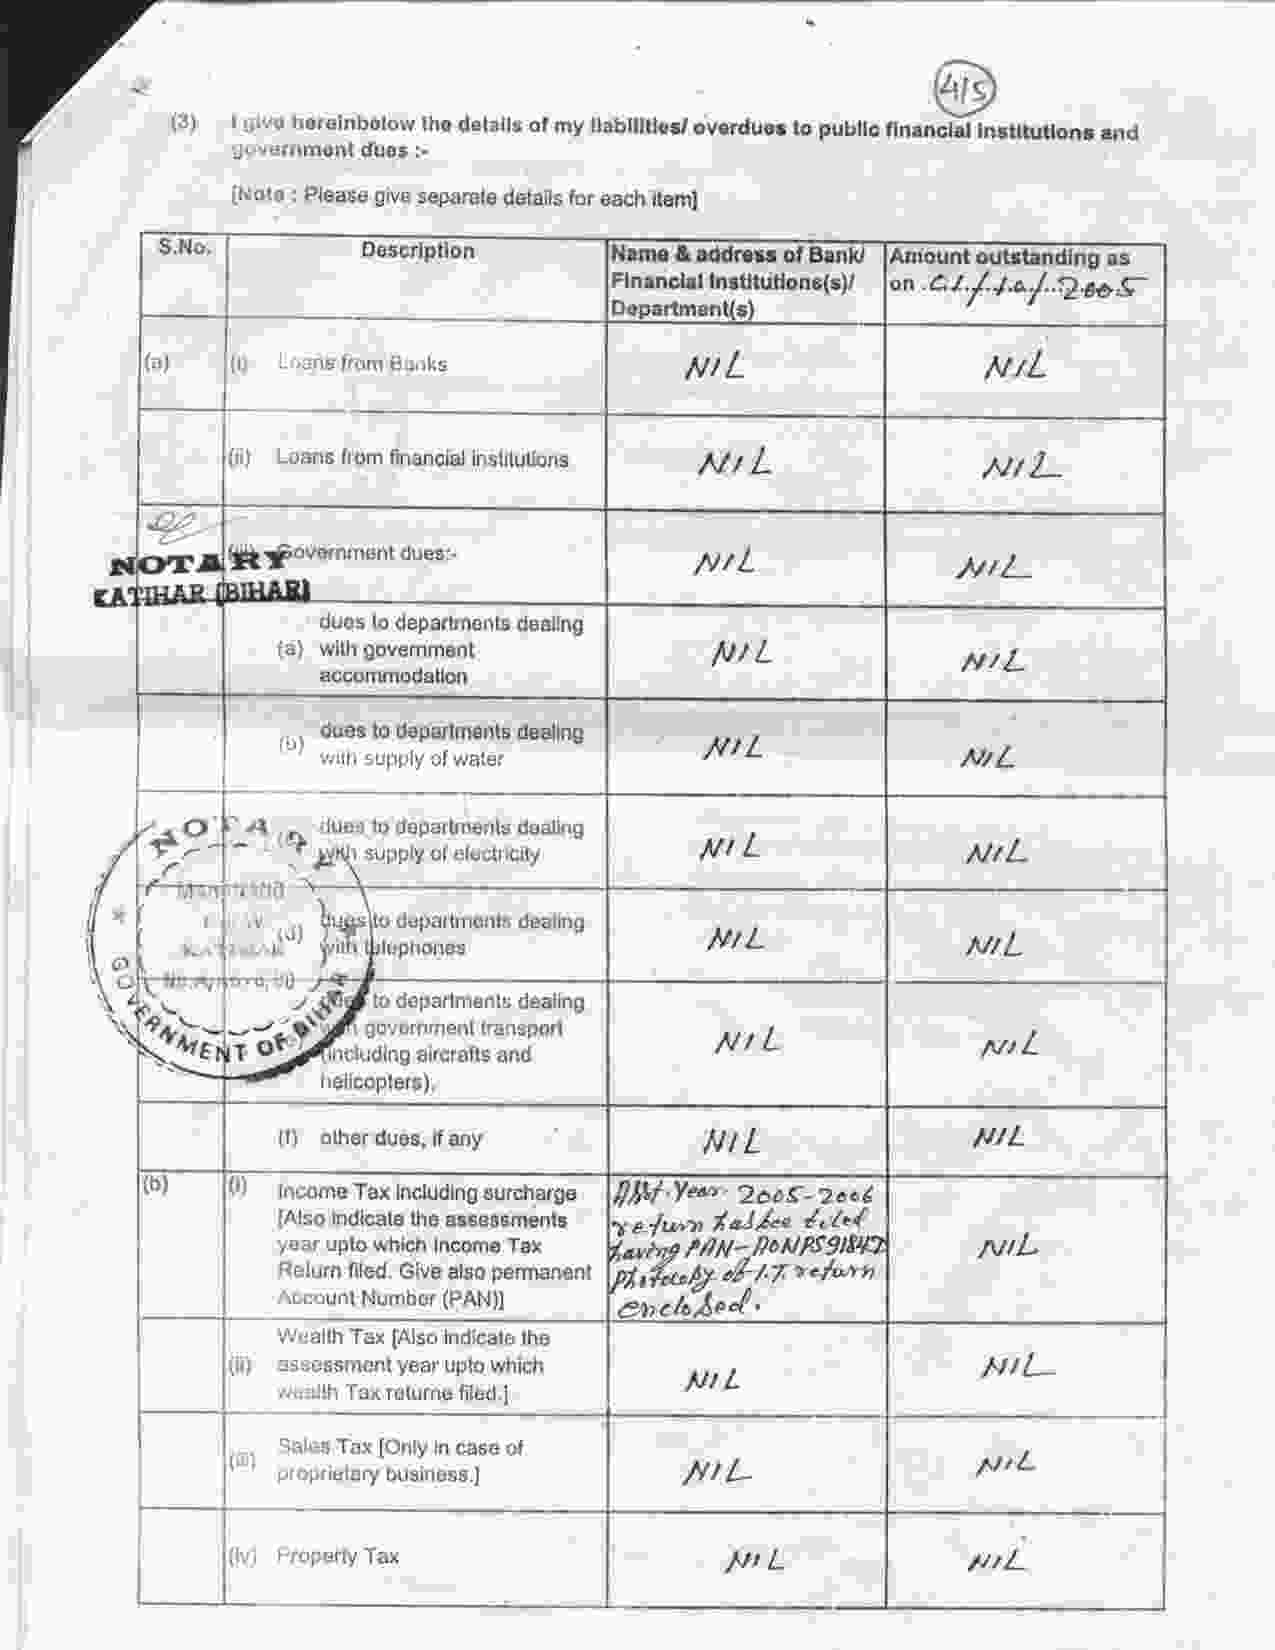 4/5
(3) I give hereinbelow the details of my liabilities/ overdues to public financial institutions and
government dues :-
[Note : Please give separate details for each item]
S.No. Description Name & address of Bank/ Amount outstanding as
Financial Institutions(s)/ on 2005
Department(s)
(a) (i) Loans from Banks NIL NIL
(ii) Loans from financial institutions NIL NIL
(iii) Government dues:- NIL NIL
NOTARY
KATIHAR (BIHAR)
dues to departments dealing
(a) with government NIL NIL
accommodation
dues to departments dealing
(b) with supply of water NIL NIL
dues to departments dealing
with supply of electricity NIL NIL
dues to departments dealing
(d) with telephones NIL NIL
dues to departments dealing
with government transport NIL NIL
(including aircrafts and
helicopters).
NOTARY
KATIHAR
GOVERNMENT OF BIHAR
(f) other dues, if any NIL NIL
(b) (i) Income Tax including surcharge Asst. Year 2005-2006
[Also indicate the assessments return has bee filed
year upto which Income Tax having PAN- NIL
Return filed. Give also permanent Photocopy of I.T. return
Account Number (PAN)] enclosed.
Wealth Tax [Also indicate the
(ii) assessment year upto which NIL NIL
wealth Tax returne filed.]
(iii) Sales Tax [Only in case of NIL NIL
proprietary business.]
(iv) Property Tax NIL NIL